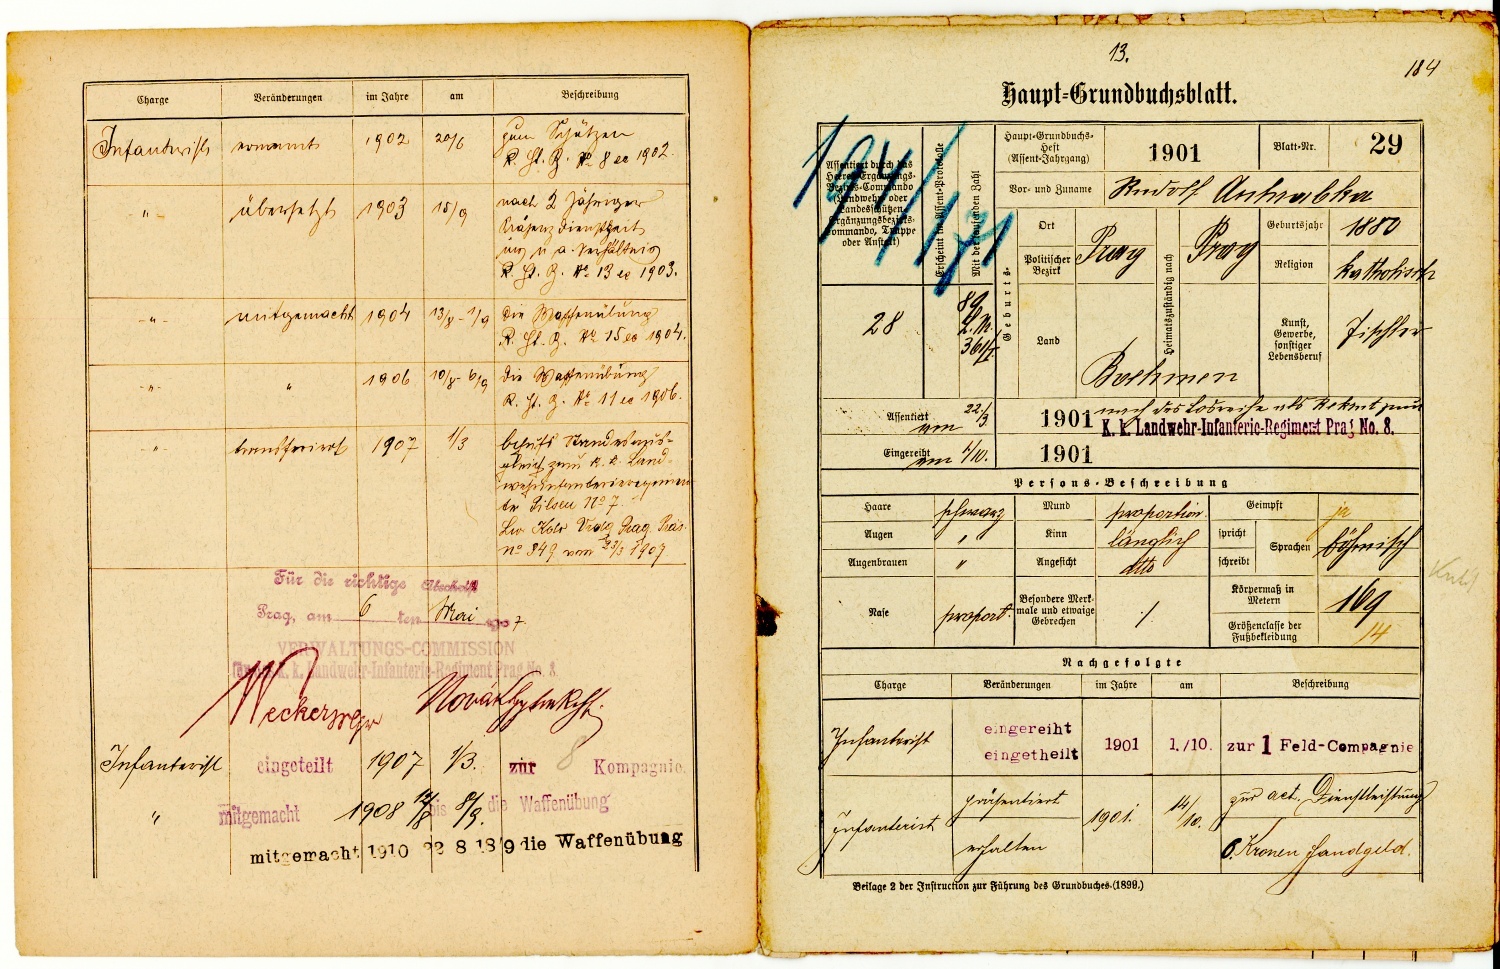 Charge Veränderungen im Jahre am Beschreibung
Infanterist ernannt 1902 20/6 zum Schützen
R. St. B. № 8 ex 1902.
" übersetzt 1903 15/9 nach 2 Jähriger
Präsenzdienstzeit
ins n. a. Verhältnis
R. St. B. № 13 ex 1903.
-"- mitgemacht 1904 13/8 - 1/9 die Waffenübung
R. St. B. № 15 ex 1904.
-"- " 1906 10/8 - 6/9 die Waffenübung
R. St. B. № 11 ex 1906.
" transferirt 1907 1/3 behufs Standesaus-
gleich zum k. k. Land-
wehrinfanterieregimen
te Pilsen № 7
Prag Präs.
№ 849 vom 1907
Für die richtige Abschrift
Prag, am 6 ten Mai 1907
VERWALTUNGS-COMMISSION
k. k. Landwehr-Infanterie-Regiment Prag No. 8.
Infanterist eingeteilt 1907 1/3. zur 8 Kompagnie.
" mitgemacht 1908 bis 8/9. die Waffenübung
mitgemacht 1910 22 8 18 9 die Waffenübung
13.
184
Haupt-Grundbuchsblatt.
Assentiert durch das
Heeres-Ergänzungs-
Bezirks-Commando
(Landwehr- oder
Landesschützen-
Ergänzungsbezirks-
commando, Truppe
oder Anstalt)
Erscheint im Assent-Protokolle
Mit der laufenden Zahl
28
89
L. M.
Haupt-Grundbuchs-
Heft
(Assent-Jahrgang)
1901
Blatt-Nr. 29
Vor- und Zuname Rudolf
Geburts-
Ort
Politischer
Bezirk
Prag
Heimatszuständig nach
Prag
Land
Boehmen
Geburtsjahr 1880
Religion katholisch
Kunst,
Gewerbe,
sonstiger
Lebensberuf
Tischler
Assentiert am 22/3 1901 nach der Losreihe als Rekrut zum
K. k. Landwehr-Infanterie-Regiment Prag No. 8.
Eingereiht am 1/10. 1901
Persons-Beschreibung
Haare schwarz Mund proportion. Geimpft ja
Augen " Kinn länglich spricht
schreibt Sprachen böhmisch
Augenbrauen " Angesicht dtto
Nase proport. Besondere Merk-
male und etwaige
Gebrechen /
Körpermaß in
Metern 169
Größenclasse der
Fußbekleidung 14
Nachgefolgte
Charge Veränderungen im Jahre am Beschreibung
Infanterist eingereiht
eingetheilt 1901 1./10. zur 1 Feld-Compagnie
Infanterist präsentiert 1901. 14/10. zur act. Dienstleistung
erhalten 6 Kronen Handgeld.
Beilage 2 der Instruction zur Führung des Grundbuches.(1899.)